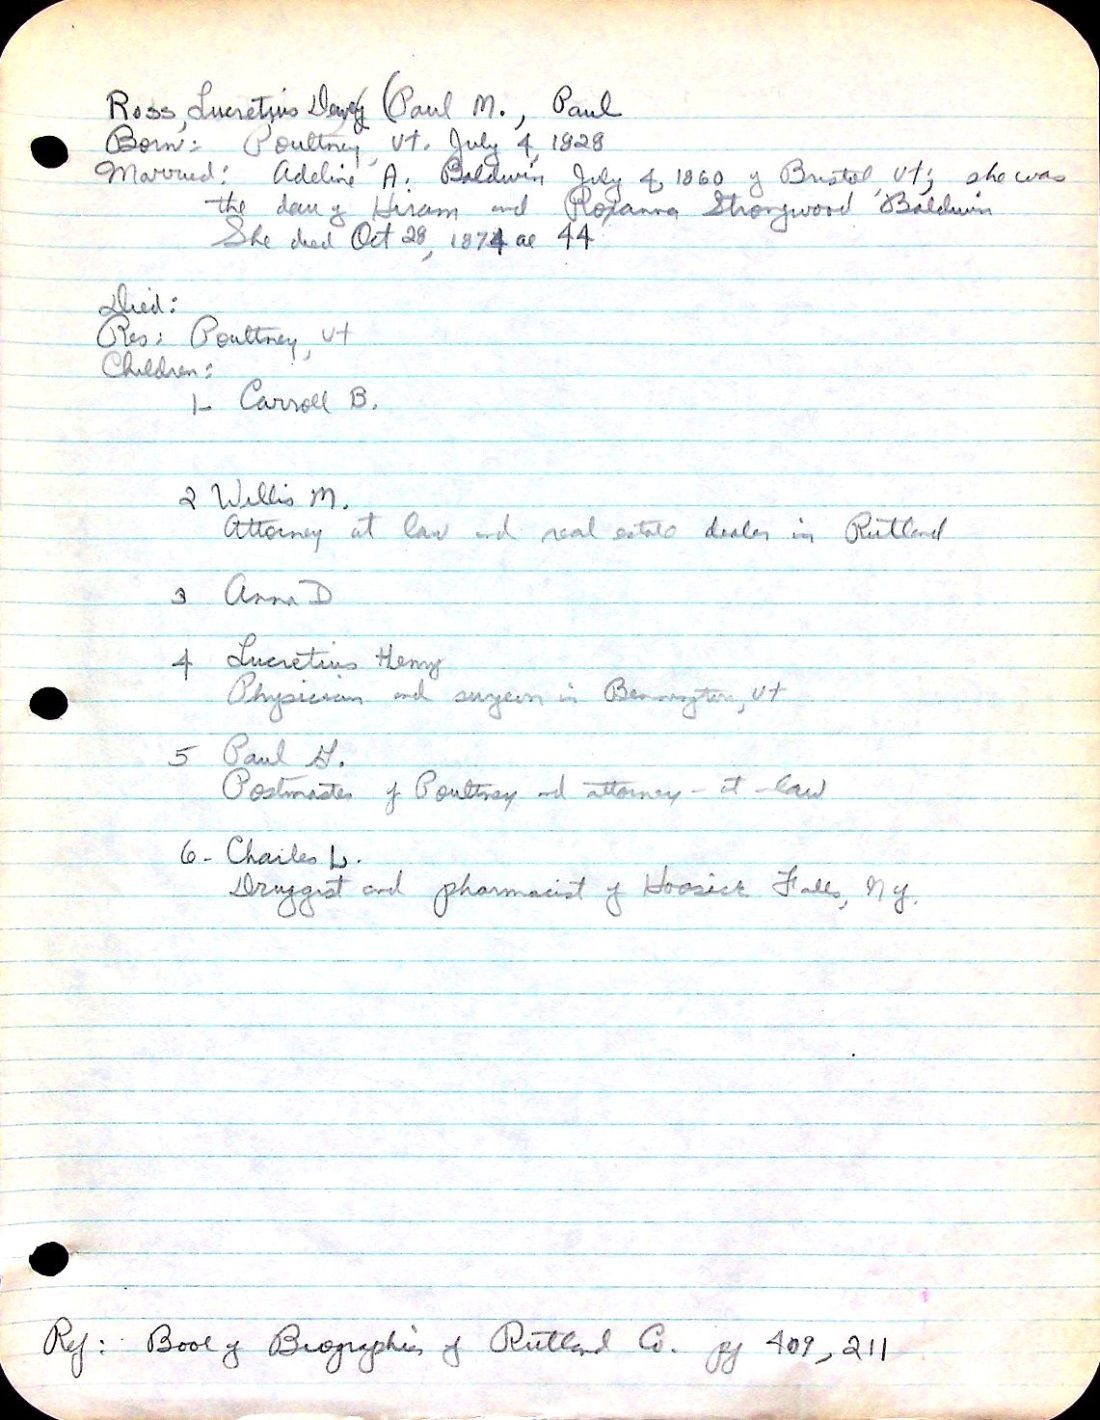 Ross, Lucretius Dewey (Paul M., Paul
Born: Poultney, Vt. July 4, 1828
Married: Adeline A. Baldwin July 4, 1860 of Bristol, Vt; she was
the dau of Hiram and Roxanna Strongwood Baldwin
She died Oct 28, 1874 ae 44
Died:
Res: Poultney, Vt
Children:
1- Carroll B.
2 Willis M.
Attorney at law and real estate dealer in Rutland
3 Anna D
4 Lucretius Henry
Physician and surgeon in Bennington, Vt
5 Paul
Postmaster of Poultney and attorney-at-law
6- Charles L.
Druggist and pharmacist of Hoosick Falls, NY.
Ref: Book of Biographies of Rutland Co. pg 409, 211